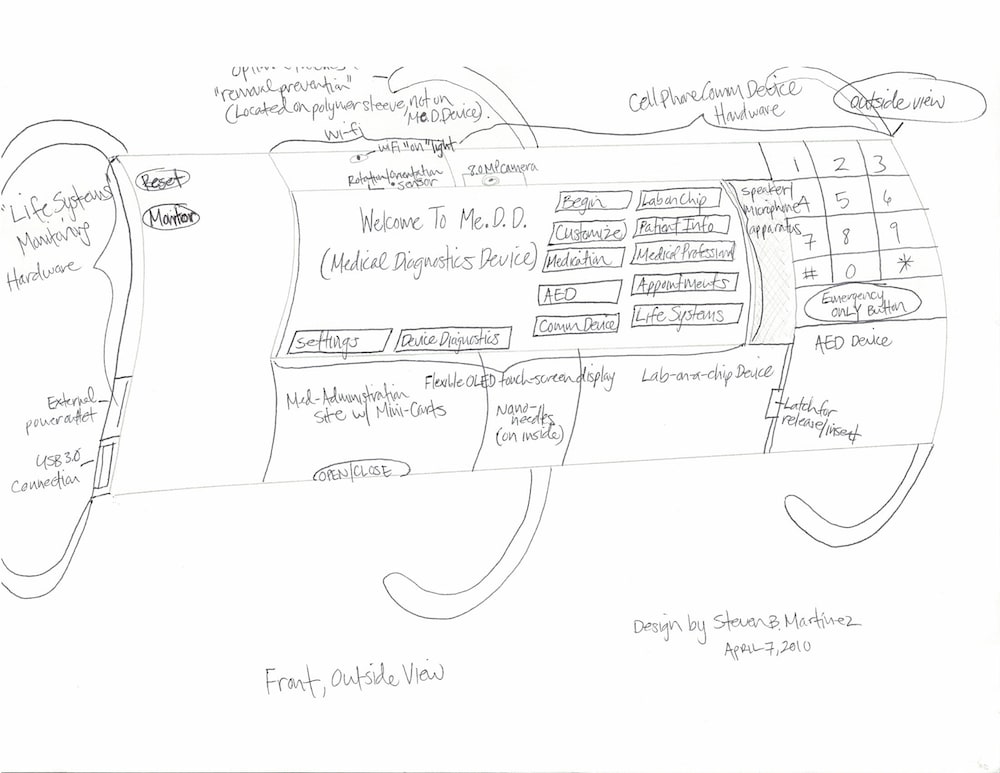 "removal prevention"
(Located on polymer sleeve, not on
Me.D.Device).
wi-fi
wiFi "on" light
Rotation/orientation
sensor
8.0 MP camera
Cell Phone Comm Device
Hardware
outside view
"Life Systems"
Monitoring
Hardware
Reset
Monitor
Welcome To Me.D.D.
(Medical Diagnostics Device)
Begin
Customize
Medication
AED
Comm Device
Lab on Chip
Patient Info
Medical Professional
Appointments
Life Systems
Settings
Device Diagnostics
speaker/
microphone
apparatus
1 2 3
4 5 6
7 8 9
# 0 *
Emergency
ONLY Button
AED Device
Latch for
release/insert
External
power outlet
USB 3.0
Connection
Med-Administration
site w/ Mini-Carts
OPEN/CLOSE
Flexible OLED touch-screen display
Nano-
needles
(on inside)
Lab-on-a-chip Device
Design by Steven B. Martinez
April 7, 2010
Front, Outside View